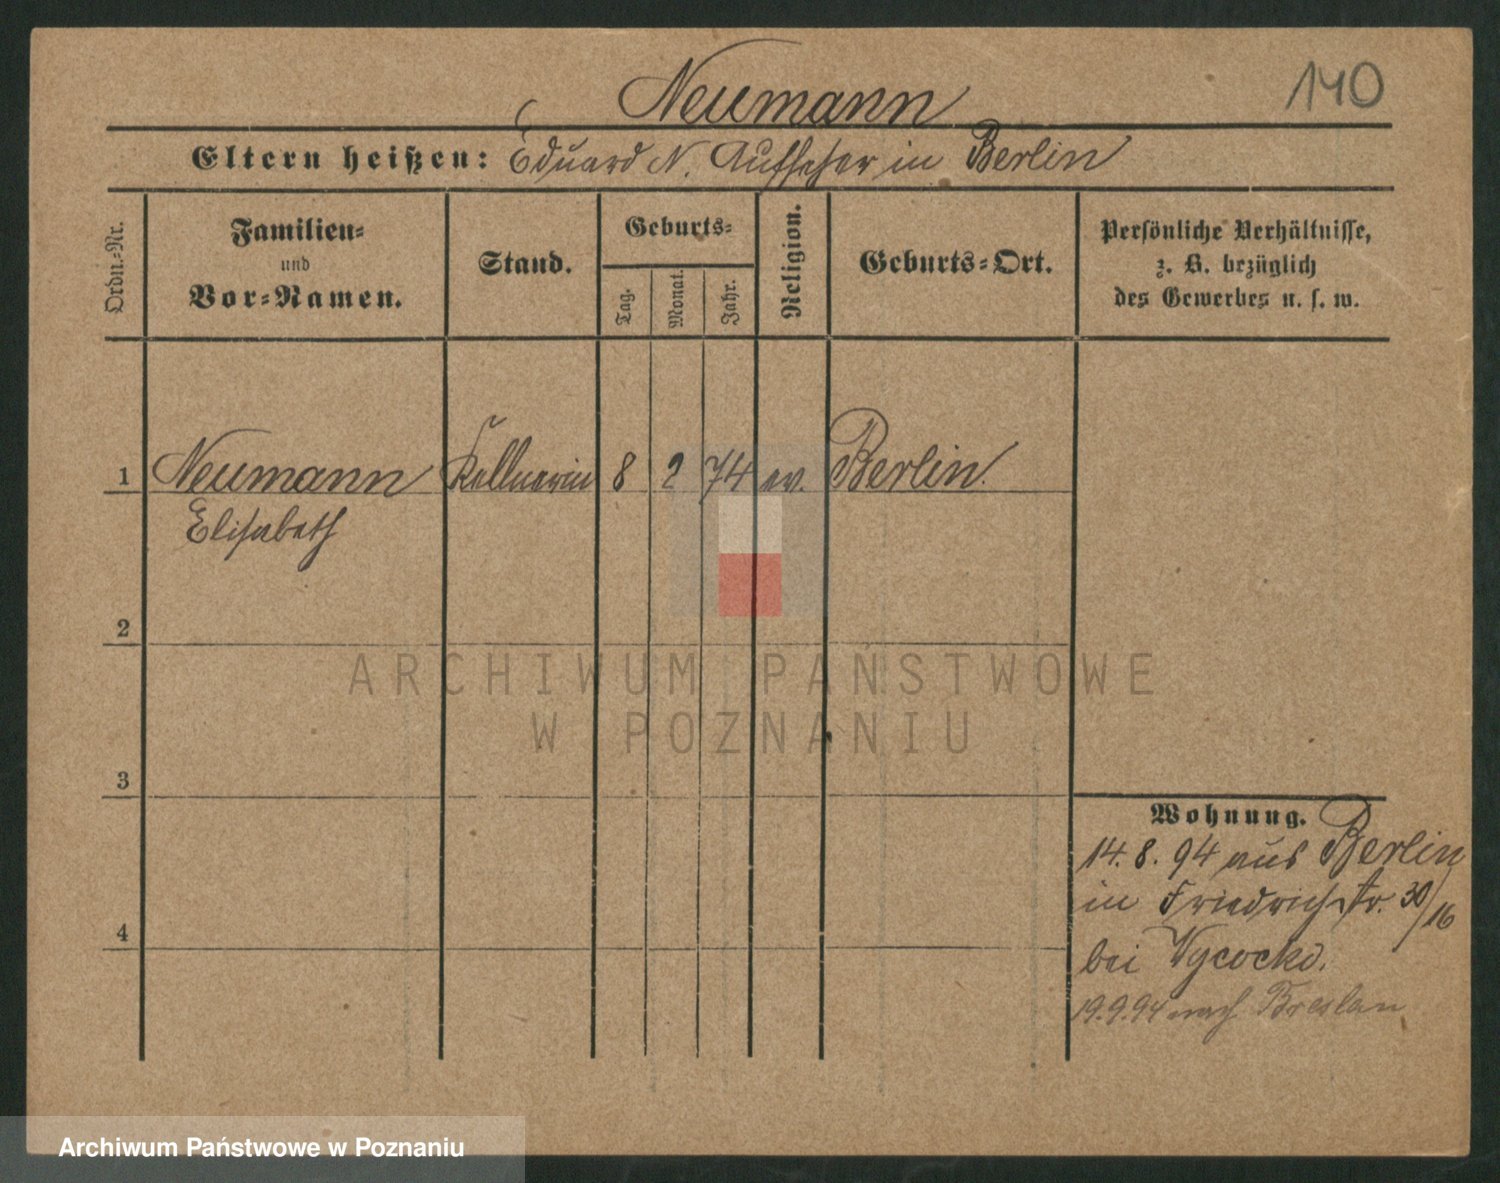 Neumann 140
Eltern heißen: Eduard N. Aufseher in Berlin
Ordn.-Nr.
Familien-
und
Vor-Namen.
Stand.
Geburts-
Tag.
Monat.
Jahr.
Religion.
Geburts-Ort.
Persönliche Verhältnisse,
z. B. bezüglich
des Gewerbes u. s. w.
1 Neumann Kellnerin 8 2 74 ev. Berlin.
Elisabeth
2
3
4
Wohnung.
14. 8. 94 aus Berlin
in Friedrichstr. 30/16
bei
19.9.94 nach Breslau
ARCHIWUM PAŃSTWOWE
W POZNANIU
Archiwum Państwowe w Poznaniu